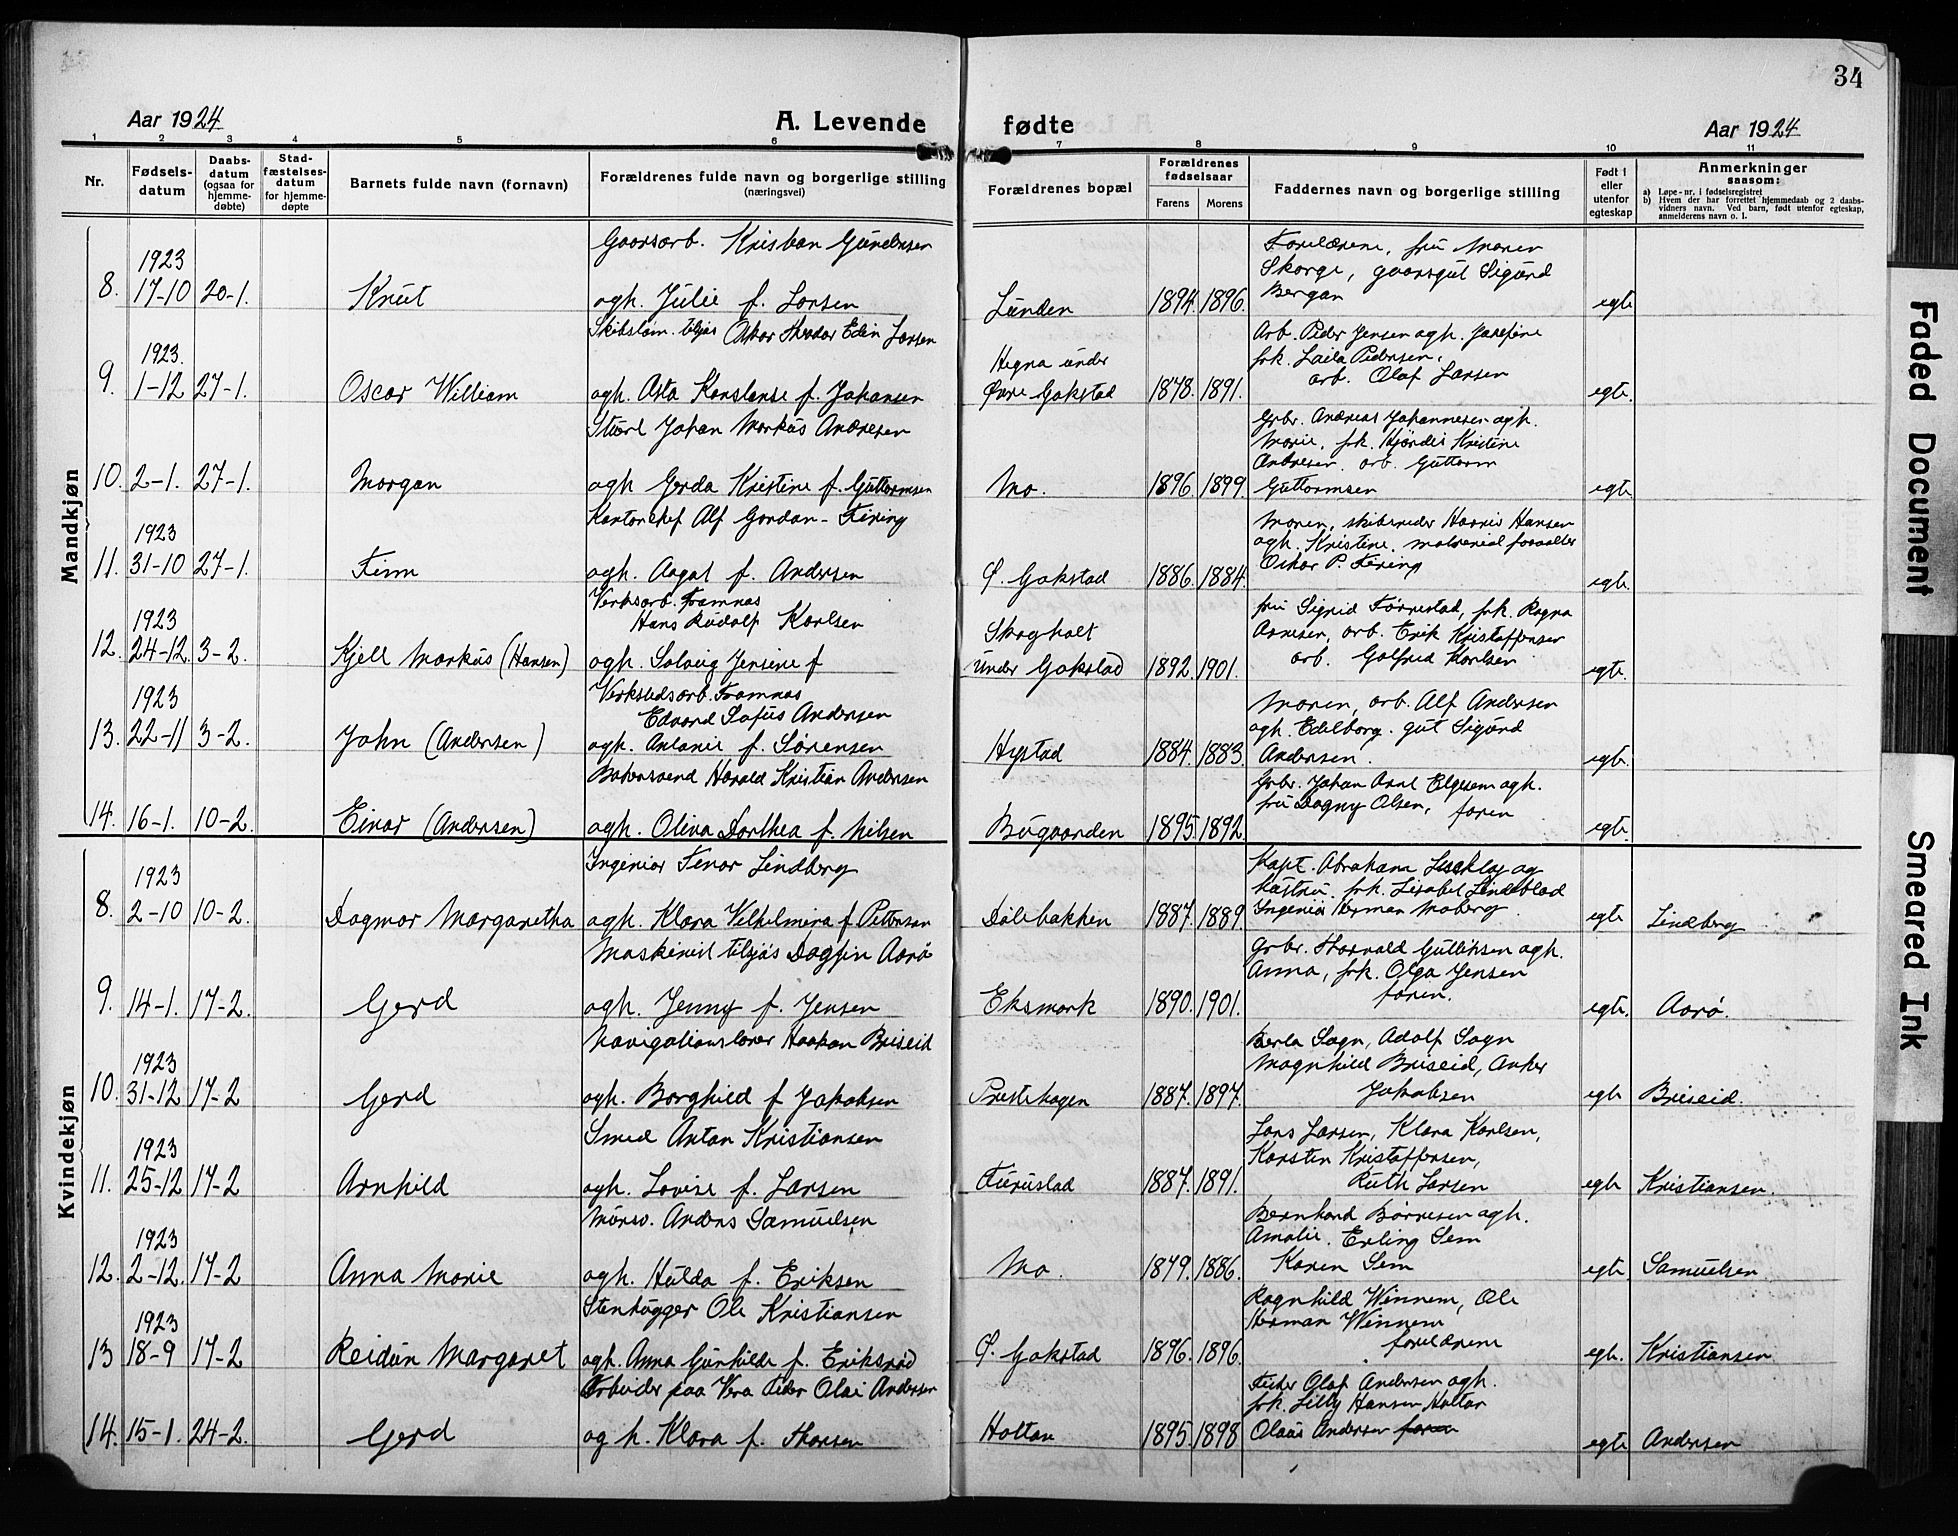 34
Aar 1924
A. Levende
fødte
Aar 1924
1 2 3 4 5 6 7 8 9 10 11
Nr.
Fødsels-
datum
Daabs-
datum
(ogsaa for
hjemme-
døbte)
Stad-
fæstelses-
datum
for hjemme-
døpte
Barnets fulde navn (fornavn)
Forældrenes fulde navn og borgerlige stilling
(næringsvei)
Forældrenes bopæl
Forældrenes
fødselsaar
Farens Morens
Faddernes navn og borgerlige stilling
Født i
eller
utenfor
egteskap
Anmerkninger
saasom:
a) Løpe-nr. i fødselsregistret
b) Hvem der har forrettet hjemmedaab og 2 daabs-
vidners navn. Ved barn, født utenfor egteskap,
anmelderens navn o. l.
Mandkjøn
Gaarsarb. Kristian Gundersen
Forældrene, fru Maren
1923
Skorge, gaarsgut Sigurd
8. 17-10 20-1. Knut ogh. Julie f. Larsen Lunden 1894. 1896. Bergan egte
Oskar Edin Larsen
Arb. Peder Jensen ogh. Josefine
1923.
Hegna under
frk. Laila Pedersen.
9. 1-12 27-1. Oscar William ogh. Asta Konstanse f. Johansen Øvre Gokstad 1878. 1891. arb. Olaf Larsen egte.
Stuert Johan Markus Andresen
Gbr. Andreas Johannesen ogh.
Marie, frk. Hjørdis Kristine
Andresen, arb. Guttorm
10. 2-1. 27-1. Morgan ogh Gerda Kristine f. Guttormsen Mo. 1896. 1899. Guttormsen egte
Kontorchef Alf Gordan-Fering
Moren, skibsreder Harris Hansen
1923
ogh. Kristine. material forvalter
11. 31-10 27-1. Finn ogh. Aagot f. Andersen Ø. Gokstad 1886. 1884. Oskar P. Fering egte.
Verksarb. Framnæs
fru Sigrid Førrestad, frk. Ragna
1923
Hans Rudolf Karlsen
Skogholt
arb. Erik Kristoffersen
12. 24-12. 3-2. Kjell Markus (Hansen) ogh. Solveig Jensine f under Gokstad 1892. 1901. arb. Golfred Karlsen egte.
1923
Verkstedsarb. Framnæs
Moren, arb. Alf Andersen
Edvard Sofus Andersen
ogh. Edelborg. gut Sigurd
13. 22-11 3-2. John (Andersen) ogh. Antonie f. Sørensen Hystad 1884. 1883. Andersen. egte.
Bakersvend Harald Kristian Andersen
Gbr. Johan Arnt Elgesem ogh.
fru Dagny Olsen, faren
14. 16-1. 10-2. Einar (Andersen) ogh. Olina Dorthea f. Nilsen Bugaarden 1895. 1892. egte.
Kvindekjøn
Ingeniør Lindberg
Kapt. Abraham og
1923
hustru. frk. Lisabet Lindeblad
8. 2-10 10-2. Dagmar Margaretha ogh. Klara Velhelmina f. Pettersen Dølebakken 1887. 1889 Ingeniør Herman Moberg. egte Lindberg
Maskinist tilsjøs Dagfin Aarø
Gbr. Thorvald Gulliksen ogh.
Anna, frk. Olga Jensen
9. 14-1. 17-2. Gerd ogh. Jenny f. Jensen Eksmark 1890. 1901. faren. egte. Aarø.
Navigationslærer Haakon Briseid
Berta Sogn, Adolf Sogn
1923
Magnhild Briseid, Anker
10. 31-12 17-2 Gerd ogh. Borghild f Jakobsen Prestehagen 1887. 1897. Jakobsen egte Briseid.
Smed Anton Kristiansen
Lars Larsen, Klara Karlsen,
1923
Karsten Kristoffersen,
11. 25-12 17-2 Arnhild ogh. Lovise f. Larsen Furustad 1887. 1891. Ruth Larsen egte Kristiansen.
Mursv. Anders Samuelsen
Bernhard Børresen ogh.
1923
Amalie. Erling Sem
12. 2-12. 17-2 Anna Marie ogh. Hulda f. Eriksen Mo. 1879. 1886. Karen Sem egte Samuelsen
Stenhugger Ole Kristiansen
Ragnhild Winnem, Ole
1923
Herman Winnem
13 18-9 17-2 Reidun Margaret ogh. Anna Gunhilde f. Eriksrød Ø. Gokstad 1896. 1896. forældrene egte. Kristiansen
Arbeider paa Vera Peder Olai Andersen
Olaf Andersen ogh.
frk. Lilly Hansen Holtan
14. 15-1. 24-2. Gerd og h. Klara f. Thorsen Holtan 1895. 1898 Olaus Andersen faren egte Andersen
Faded Document
Smeared Ink